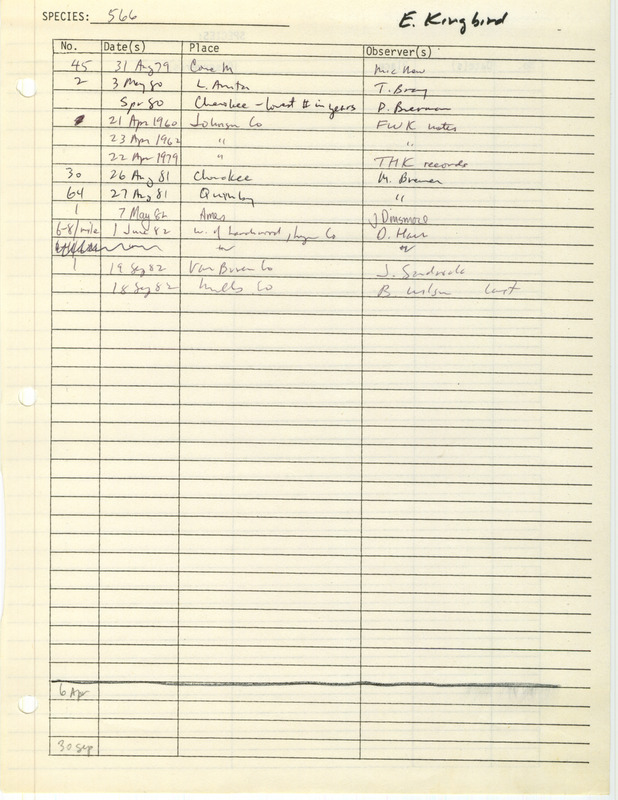 SPECIES: 566 E. Kingbird
No. Date(s) Place Observer(s)
45 31 Aug 79 Cone M
2 3 May 80 L. Anita T. Bray
Spr 80 Cherokee - lowest # in years D. Bierman
21 Apr 1960 Johnson Co FWK notes
23 Apr 1962 " "
22 Apr 1979 THK records
30 26 Aug 81 Cherokee M. Brewer
64 27 Aug 81 Quimby "
1 7 May 82 Ames J Dinsmore
6-8/mile 1 June 82 W. of Larchwood, Lyon Co D.
1 19 Sep 82 Van Buren Co J. Sandrock
18 Sep 82 Mills Co B Wilson last
6 Apr
30 Sep